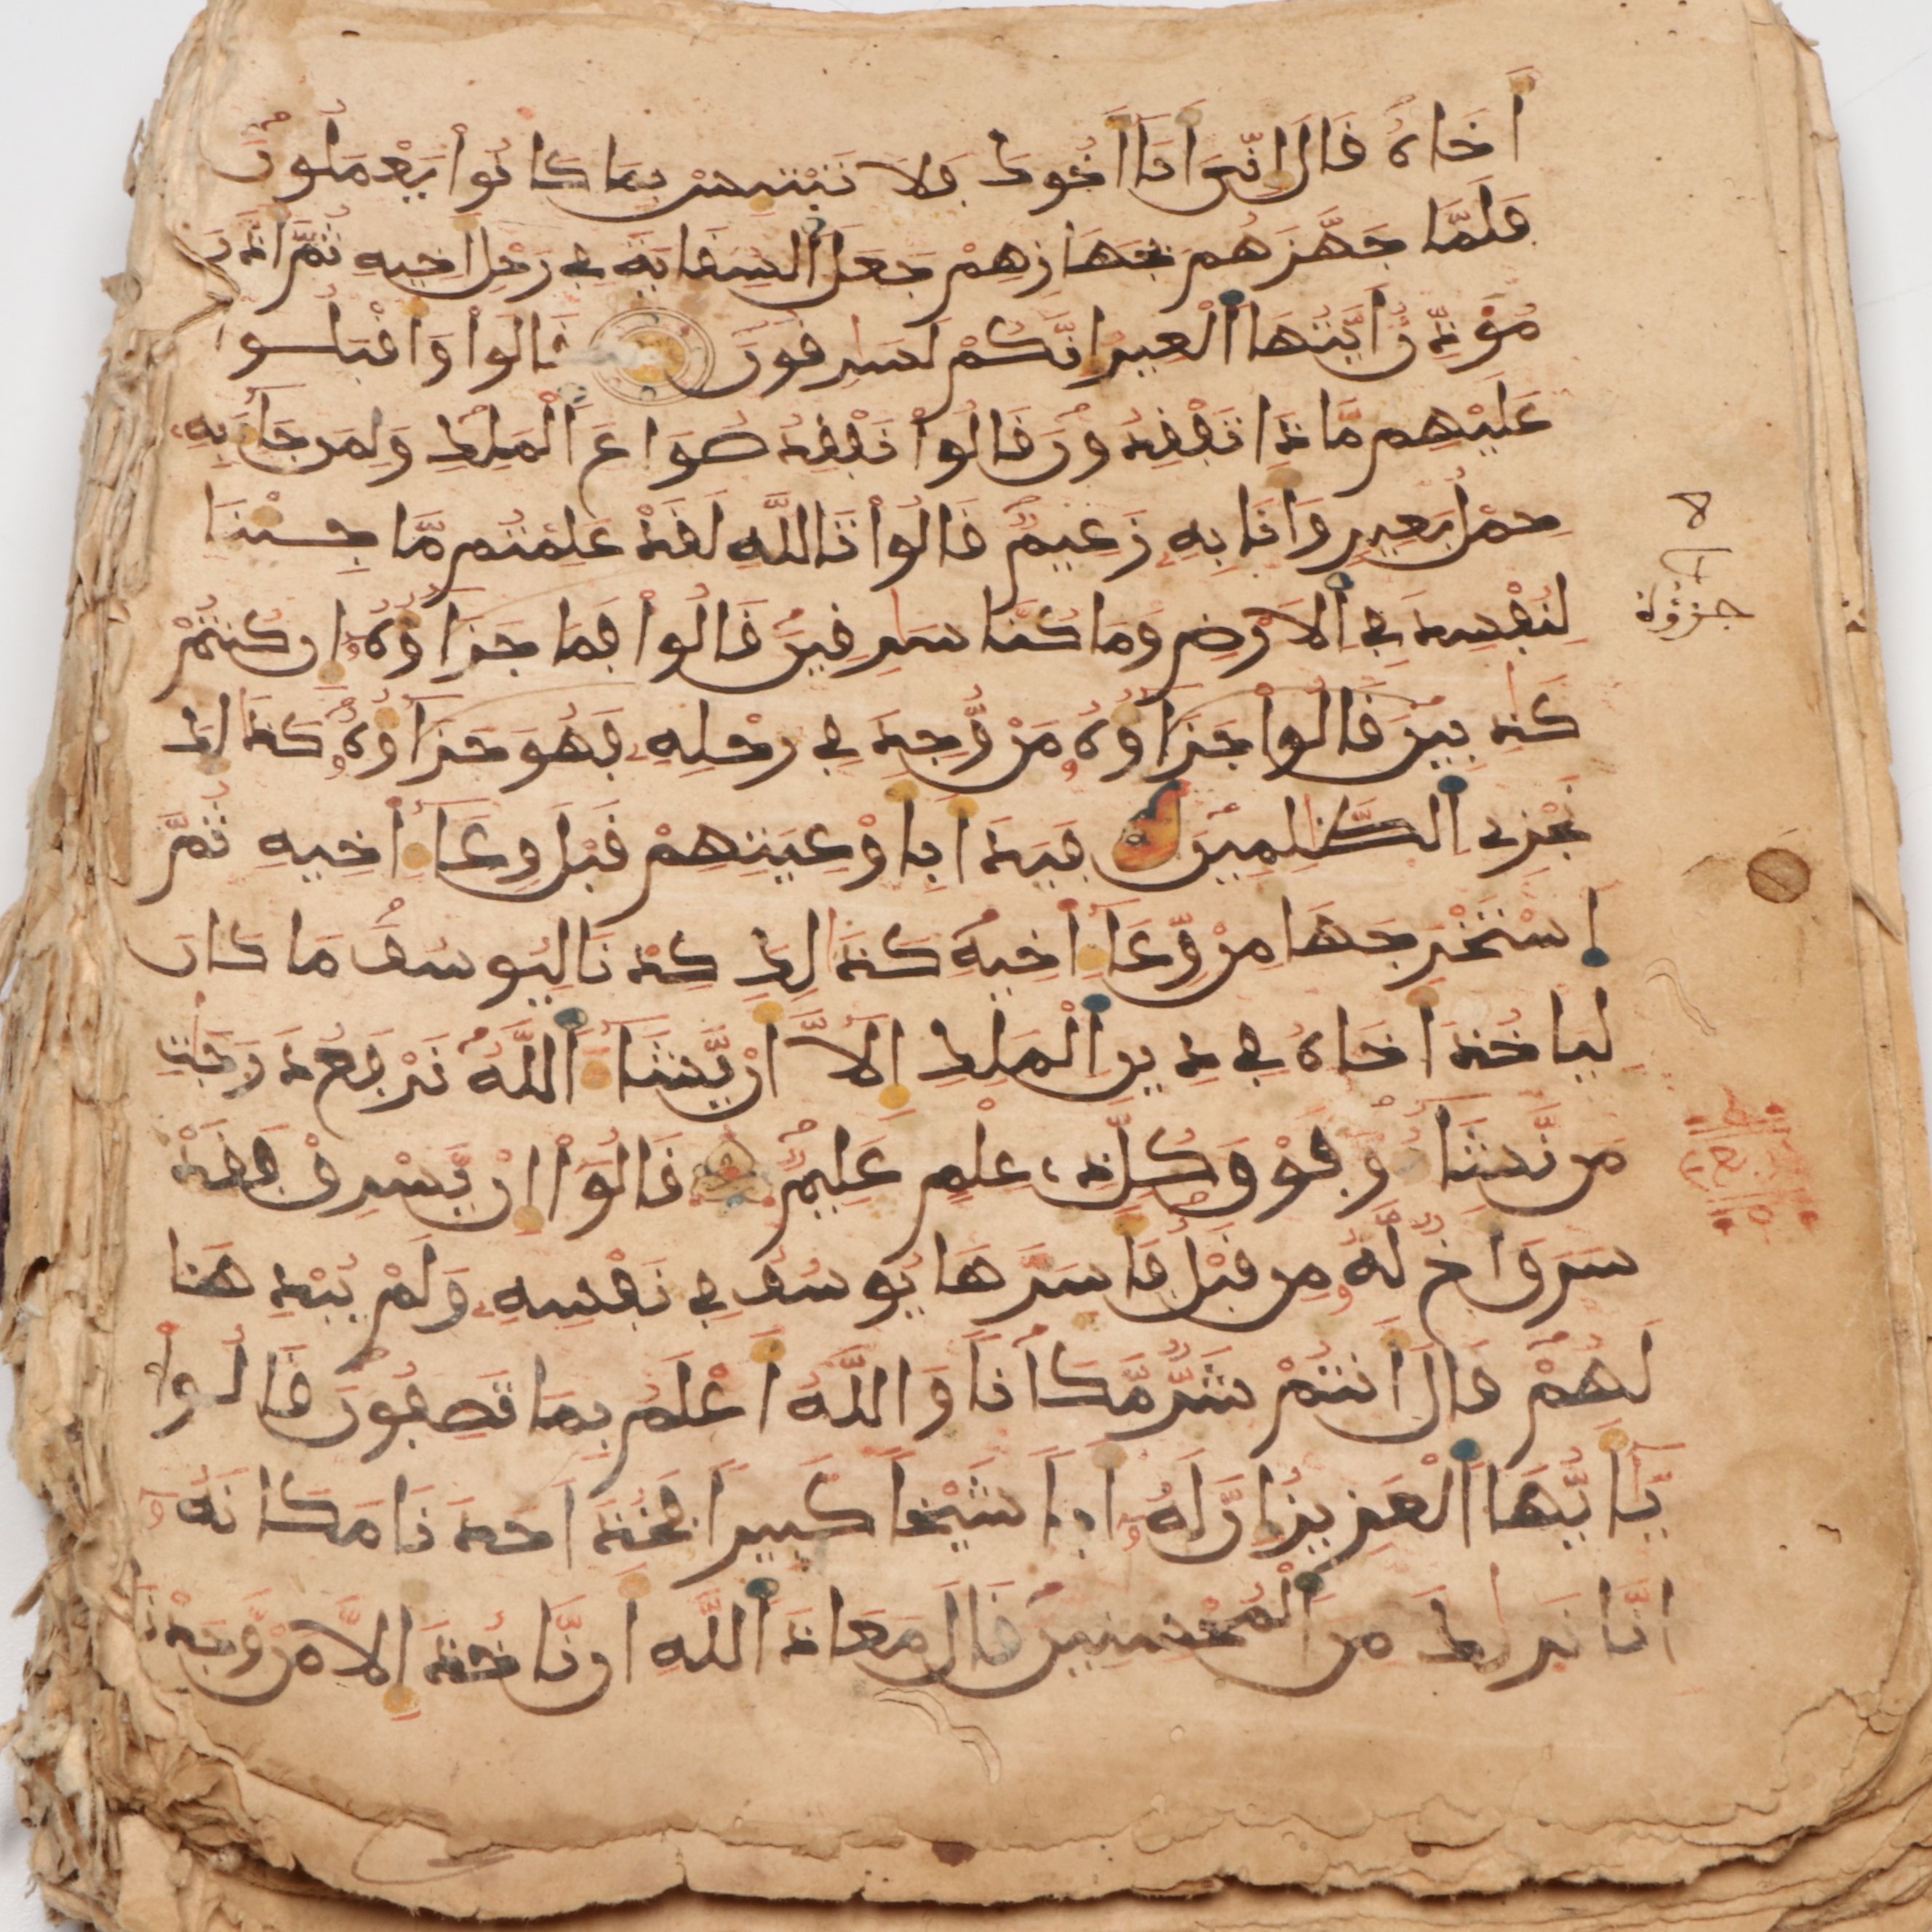 أَخَاهُ قَالَ إِنِّيَ أَنَا أَخُوكَ فَلَا تَبْتَئِسْ بِمَا كَانُواْ يَعْمَلُونَ
فَلَمَّا جَهَّزَهُم بِجَهَازِهِمْ جَعَلَ السِّقَايَةَ فِي رَحْلِ أَخِيهِ ثُمَّ أَذَّنَ
مُؤَذِّنٌ أَيَّتُهَا الْعِيرُ إِنَّكُمْ لَسَٰرِقُونَ قَالُواْ وَأَقْبَلُواْ
عَلَيْهِم مَّاذَا تَفْقِدُونَ قَالُواْ نَفْقِدُ صُوَاعَ الْمَلِكِ وَلِمَن جَآءَ بِهِ
حِمْلُ بَعِيرٍ وَأَنَا بِهِ زَعِيمٌ قَالُواْ تَاللَّهِ لَقَدْ عَلِمْتُم مَّا جِئْنَا
لِنُفْسِدَ فِي الْأَرْضِ وَمَا كُنَّا سَٰرِقِينَ قَالُواْ فَمَا جَزَآؤُهُ إِن كُنتُمْ
كَٰذِبِينَ قَالُواْ جَزَآؤُهُ مَنْ وُّجِدَ فِي رَحْلِهِ فَهُوَ جَزَآؤُهُ كَذَٰلِكَ
نَجْزِي الظَّٰلِمِينَ فَبَدَأَ بِأَوْعِيَتِهِمْ قَبْلَ وِعَآءِ أَخِيهِ ثُمَّ
اَسْتَخْرَجَهَا مِنْ وِّعَآءِ أَخِيهِ كَذَٰلِكَ كِدْنَا لِيُوسُفَ مَا كَانَ
لِيَأْخُذَ أَخَاهُ فِي دِينِ الْمَلِكِ إِلَّآ أَنْ يَّشَآءَ اللَّهُ نَرْفَعُ دَرَجَٰتِ
مَن نَّشَآءُ وَفَوْقَ كُلِّ ذِي عِلْمٍ عَلِيمٌ قَالُواْ إِنْ يَّسْرِقْ فَقَدْ
سَرَقَ أَخٌ لَّهُ مِن قَبْلُ فَأَسَرَّهَا يُوسُفُ فِي نَفْسِهِ وَلَمْ يُبْدِهَا
لَهُمْ قَالَ أَنتُمْ شَرٌّ مَّكَانًا وَاللَّهُ أَعْلَمُ بِمَا تَصِفُونَ قَالُواْ
يَٰٓأَيُّهَا الْعَزِيزُ إِنَّ لَهُ أَبًا شَيْخًا كَبِيرًا فَخُذْ أَحَدَنَا مَكَانَهُ
إِنَّا نَرَىٰكَ مِنَ الْمُحْسِنِينَ قَالَ مَعَاذَ اللَّهِ أَن نَّأْخُذَ إِلَّا مَنْ وَّجَدْنَا